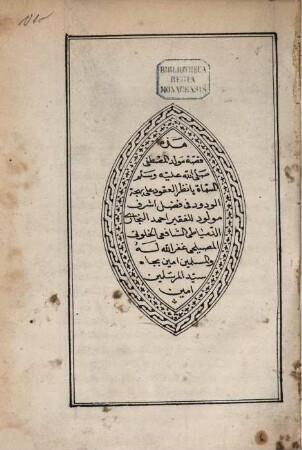 BIBLIOTHECA
REGIA
MONACENSIS
هذه
قصة مولد المصطفى
صلى الله عليه وسلم
المسماة بانظر العقود على بهجة
الودود فى فضل اشرف
مولود للفقير احمد النجارى
الدمياطى الشافعى الخلوتى
المصيلحى غفر الله له
والمسلمين امين بجاه
سيد المرسلين
امين